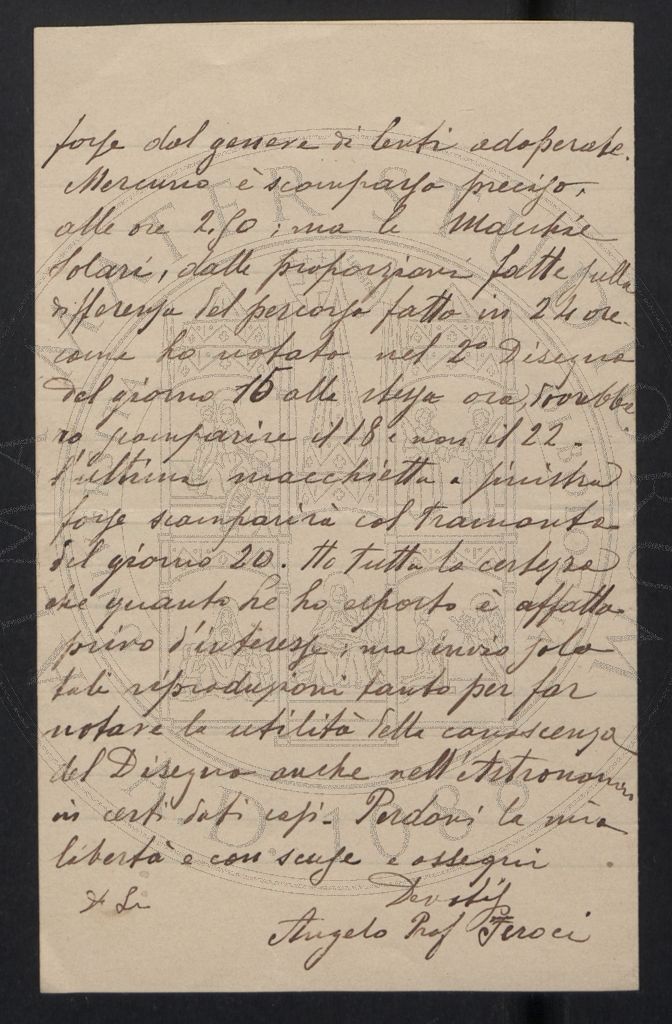 forse dal genere di lenti adoperate.
Mercurio è scomparso preciso,
alle ore 2,50; ma le Macchie
Solari, dalle proporzioni fatte sulla
differenza del percorso fatto in 24 ore.
come ho notato nel 2º Disegno
del giorno 15 alla stessa ora, dovrebbe
ro scomparire il 18 e non il 22 -
l'ultima macchietta a sinistra
forse scomparirà col tramonto
del giorno 20. Ho tutta la certezza
che quanto ho esposto è affatto
privo d'interesse; ma invio solo
tali riproduzioni tanto per far
notare la utilità della conoscenza
del Disegno anche nell'Astronomia
in certi dati casi - Perdoni la mia
libertà e con scuse e ossequi
Devotis
Angelo Prof Feroci
ALMA MATER STUDIORUM
A.D. 1088